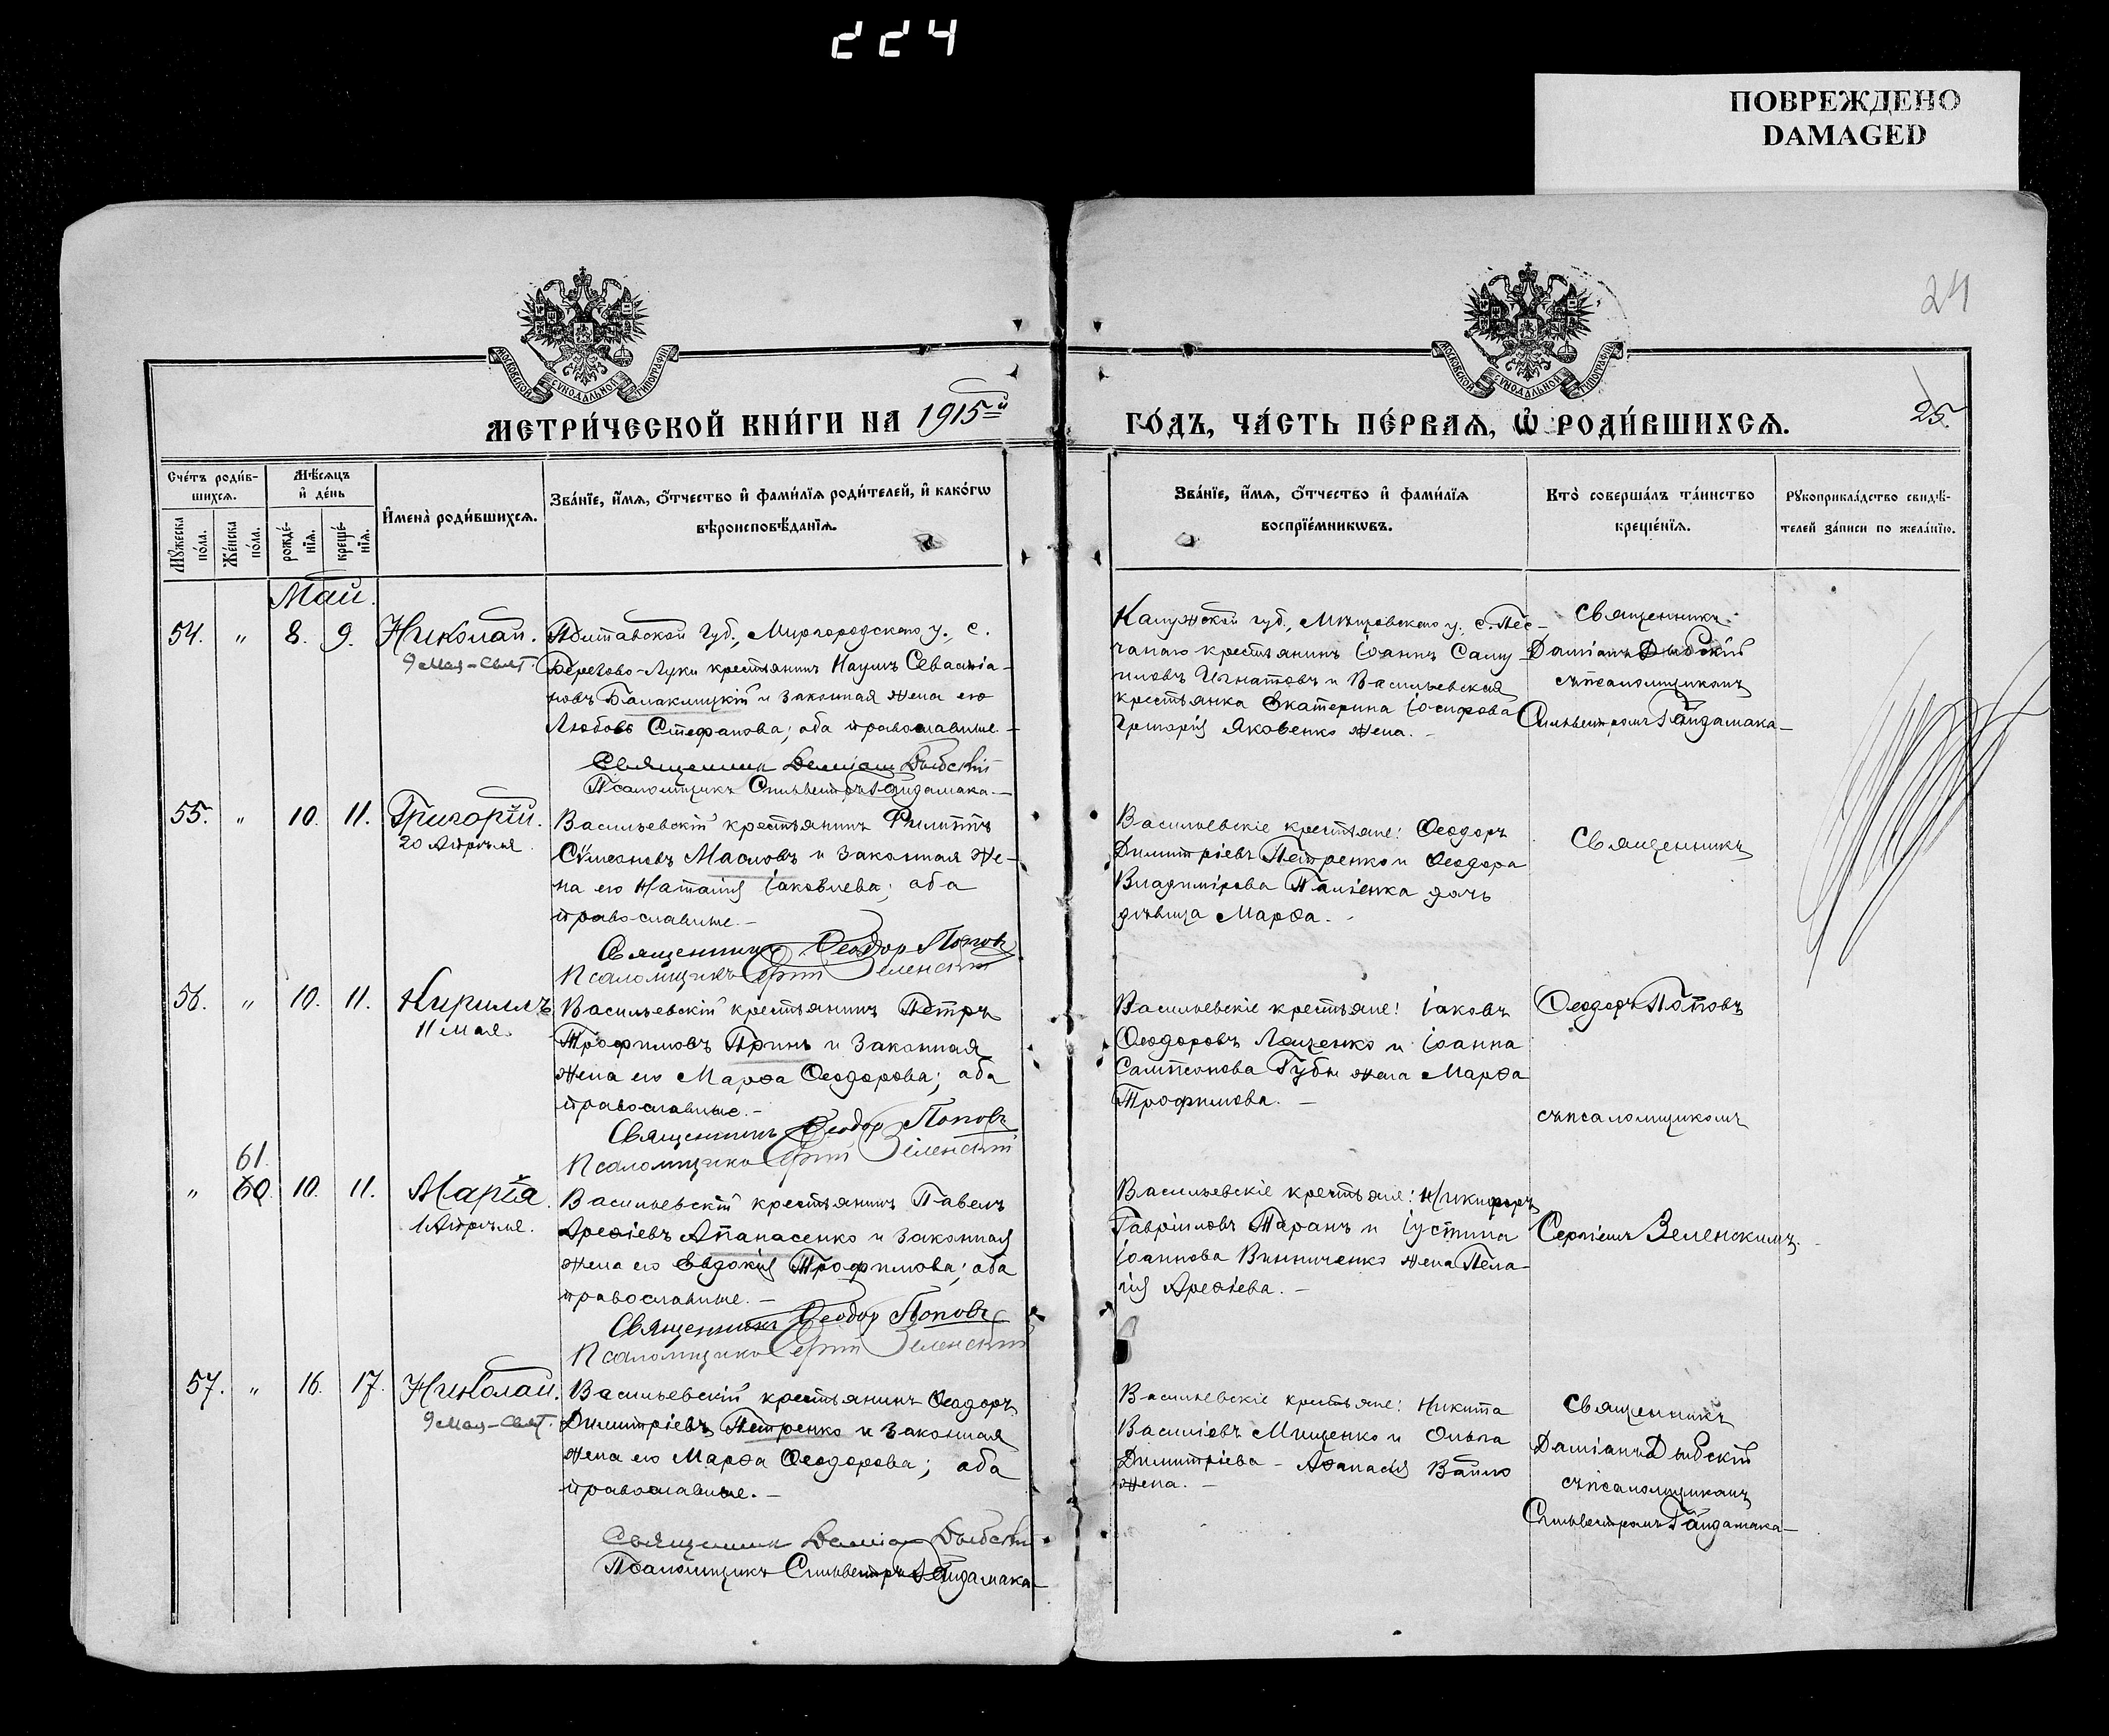 224
ПОВРЕЖДЕНО
DAMAGED
24
МОСКОВСКОЙ СѴНОДАЛЬНОЙ ТИПОГРАФІИ
МОСКОВСКОЙ СѴНОДАЛЬНОЙ ТИПОГРАФІИ
МЕТРИ́ЧЕСКОЙ КНИ́ГИ НА 1915й
ГО́ДЪ, ЧА́СТЬ ПЕ́РВАЯ, Ѡ РОДИ́ВШИХСЯ.
25.
Сче́тъ роди́в-
шихся.
Мѣ́сяцъ
и де́нь
Мꙋ́жеска
по́ла.
Же́нска
по́ла.
рожде́-
нїя.
креще́-
нїя.
Имена̀ роди́вшихся.
Зва́нїе, и́мя, ѻ́тчество и фами́лїя роди́телей, и како́гѡ
вѣроисповѣ́данїя.
Зва́нїе, и́мя, ѻ́тчество и фами́лїя
воспрїе́мникѡвъ.
Кто̀ соверша́лъ та́инство
креще́нїя.
Рꙋкоприкла́дство свидѣ́-
телей за́писи по жела́нїю.
Май.
54. " 8. 9. Николай.
9 Мая – Свят.
Полтавской губ., Миргородскаго у., с.
Березово-Луки крестьянинъ Наумъ Севастіа-
новъ Балаклицкій и законная жена его
Любовь Стефанова; оба православные. –
Священник Даміан Дыбскій
Псаломщикъ Сильвестръ Гайдамака. –
Калужской губ., Мещовскаго у., с. Пес-
чанаго крестьянинъ Іоаннъ Саму-
иловъ Игнатовъ и Васильевская
крестьянка Екатерина Іосифова
Григорія Яковенко жена. –
Священникъ
Даміанъ Дыбскій
съ псаломщикомъ
Сильвестромъ Гайдамака –
55. " 10. 11. Григорій.
20 Апрѣля.
Васильевскій крестьянинъ Филиппъ
Сѵмеоновъ Масловъ и законная же-
на его Наталія Іаковлева; оба
православные. –
Священникъ Ѳеодор Поповъ
Псаломщикъ Сергій Зеленскій
Васильевскіе крестьяне: Ѳеодоръ
Димитріевъ Петренко и Ѳеодора
Владимірова Паліенка дочь
дѣвица Марѳа. –
Священникъ
56. " 10. 11. Кириллъ
11 мая.
Васильевскій крестьянинъ Петръ
Трофимовъ Принь и законная
жена его Марѳа Ѳеодорова; оба
православные. –
Священникъ Ѳеодор Поповъ
Псаломщикъ Сергій Зеленскій
Васильевскіе крестьяне: Іаковъ
Ѳеодоровъ Лященко и Іоанна
Сампсонова Губы жена Марѳа
Трофимова. –
Ѳеодоръ Поповъ
съ псаломщикомъ
61.
" 60. 10. 11. Марія
1 Апрѣля.
Васильевскій крестьянинъ Павелъ
Ареѳіевъ Апанасенко и законная
жена его Евдокія Трофимова; оба
православные. –
Священникъ Ѳеодор Поповъ
Псаломщикъ Сергій Зеленскій
Васильевскіе крестьяне: Никифоръ
Гавріиловъ Таранъ и Іустина
Іоаннова Винниченко жена Пела-
гія Ареѳіева. –
Сергіемъ Зеленскимъ.
57. " 16. 17. Николай.
9 Мая – Свят.
Васильевскій крестьянинъ Ѳеодоръ
Димитріевъ Петренко и законная
жена его Марѳа Ѳеодорова; оба
православные. –
Священник Даміан Дыбскій
Псаломщикъ Сильвестръ Гайдамака –
Васильевскіе крестьяне: Никита
Василіевъ Мищенко и Ольга
Димитріева – Аѳанасія Вайло
жена. –
Священникъ
Даміанъ Дыбскій
съ псаломщикомъ
Сильвестромъ Гайдамака –